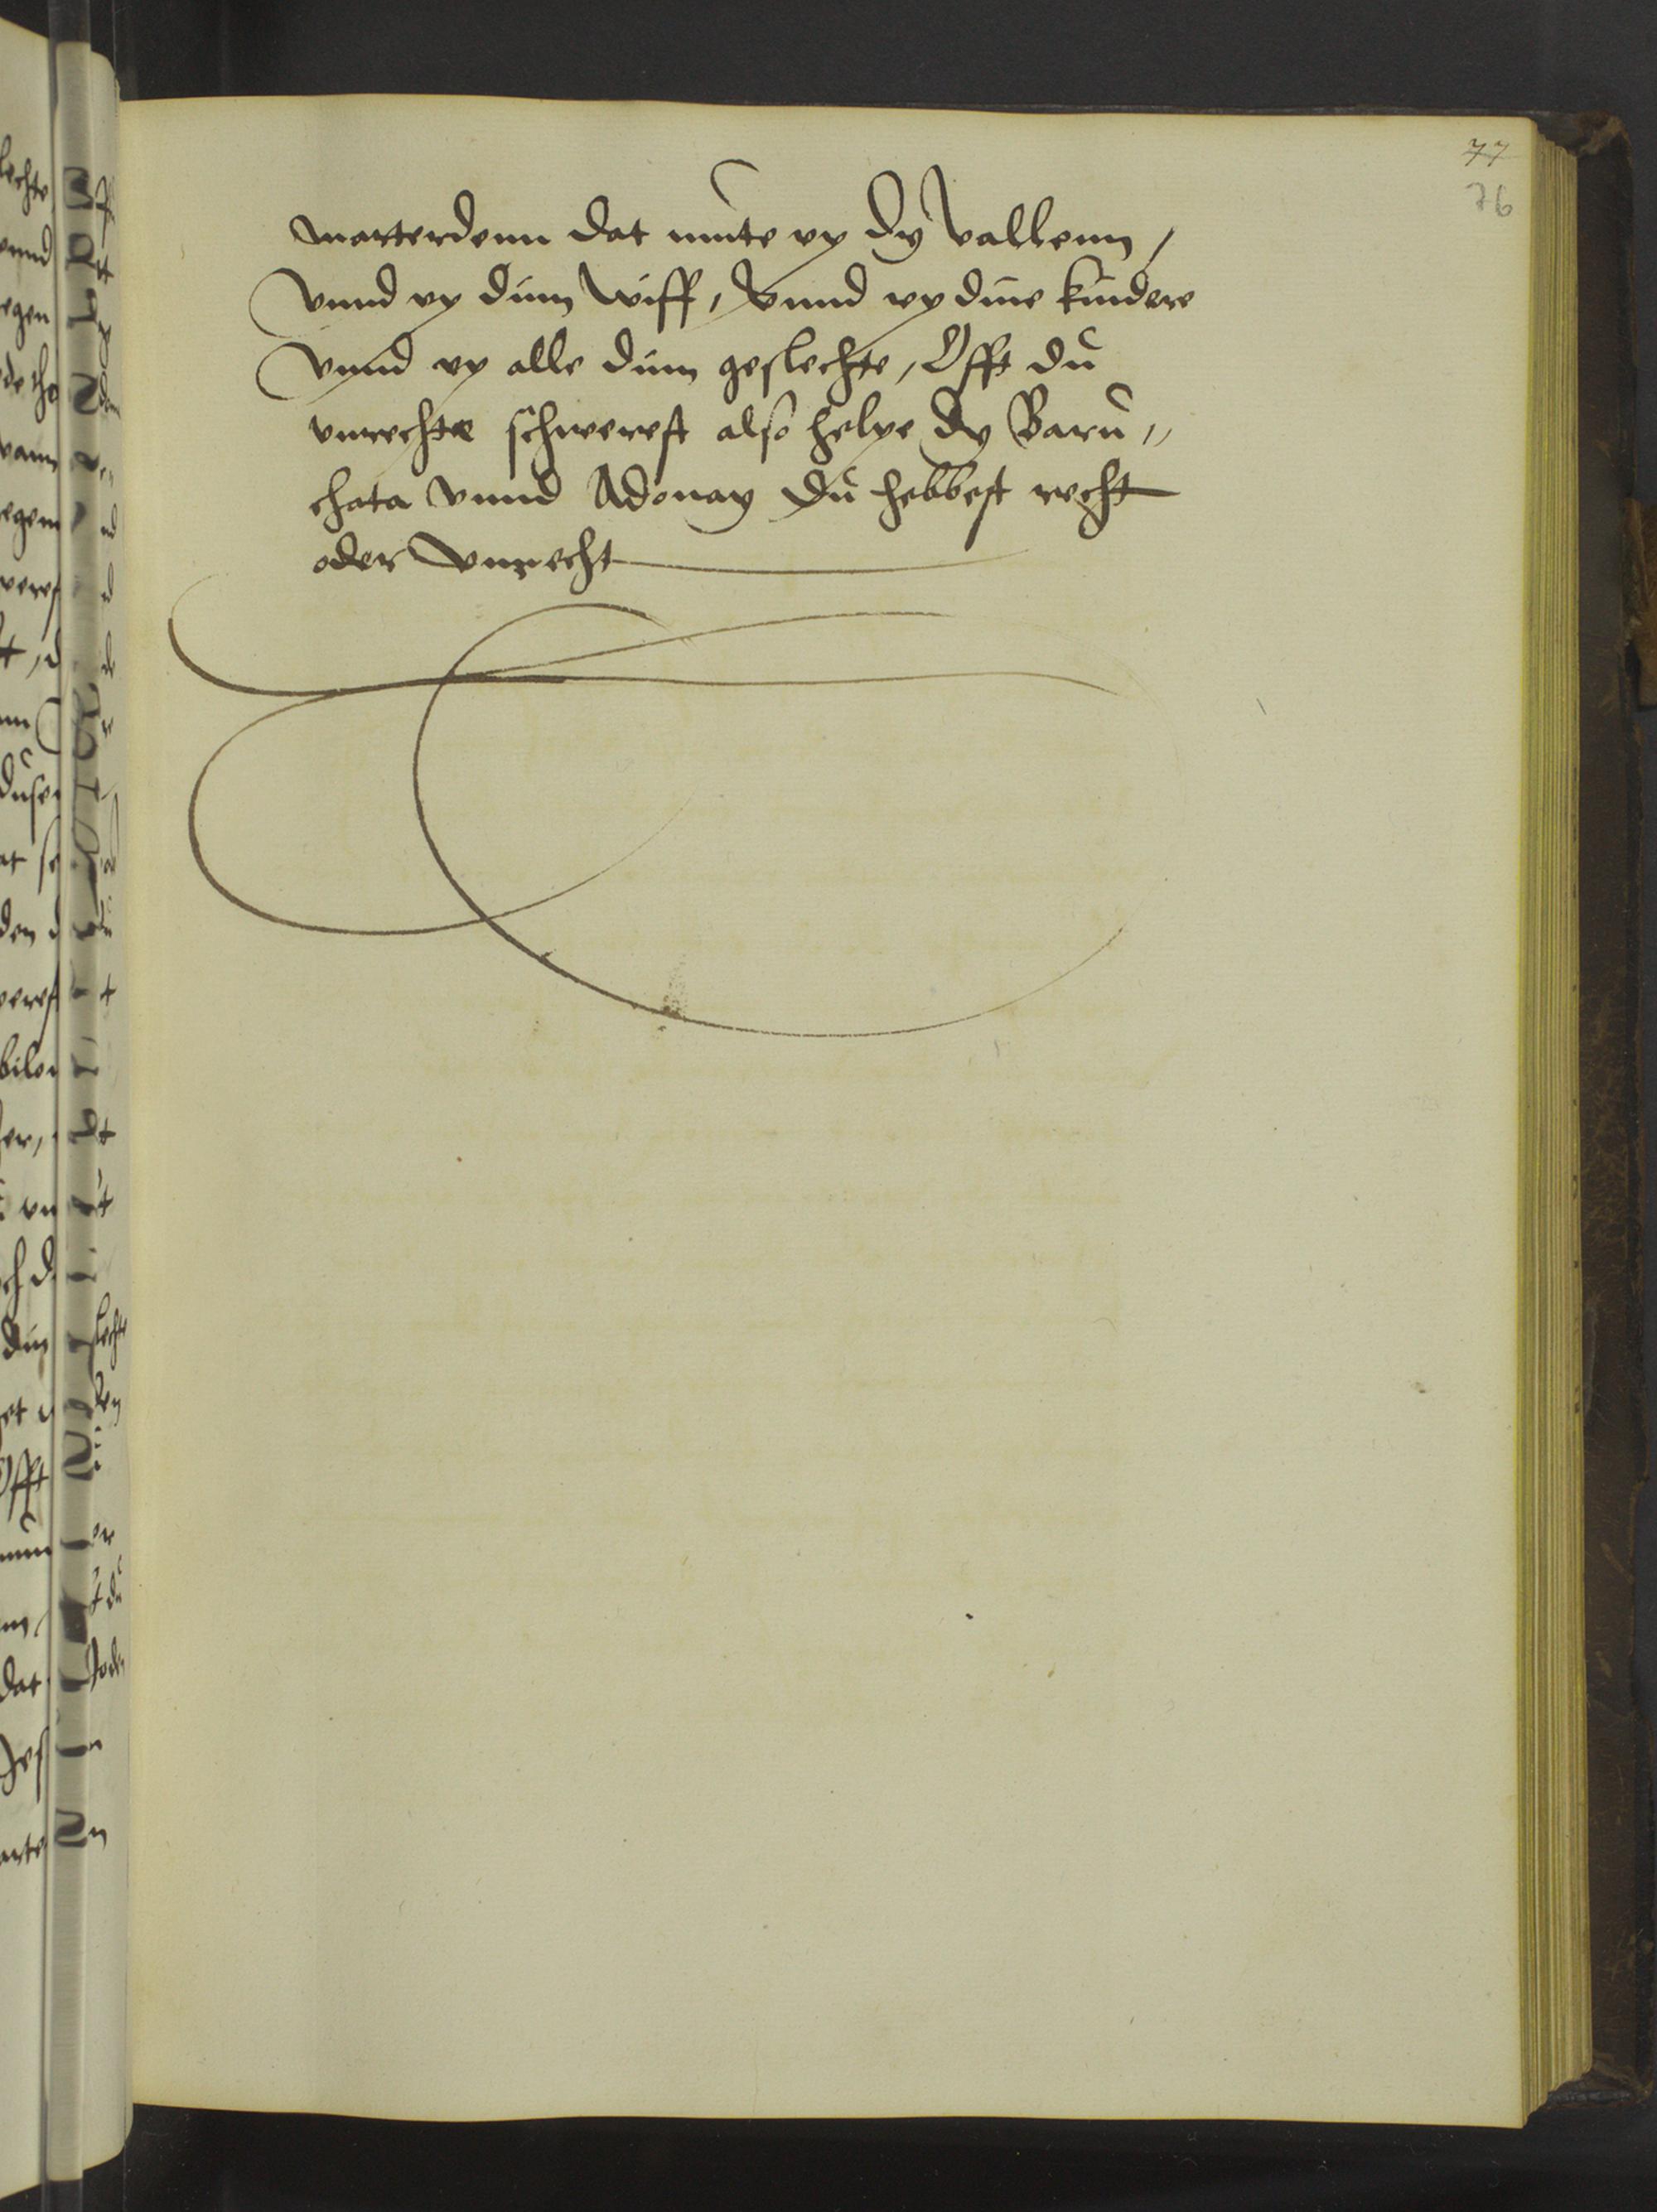 77
76
marterdenn dat mute up dy vallenn /
Vnnd vp dinn wiff, Vnnd vp dine kindere
Vnnd vp alle dinn geslechte, Offt du
vnrechte schwerest also helpe dy Baru„
chata Vnnd Adonay du hebbest recht
oder Vnrecht